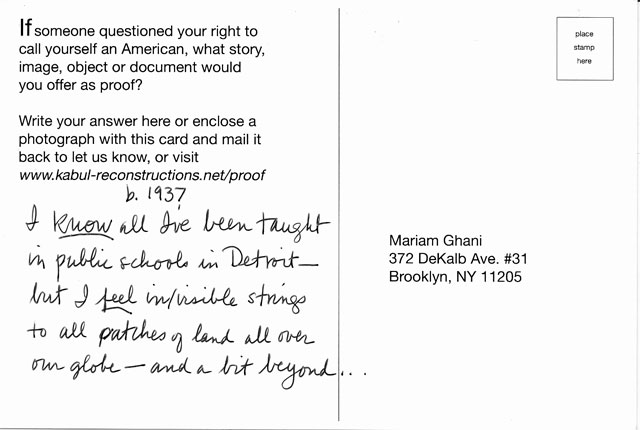 If someone questioned your right to
call yourself an American, what story,
image, object or document would
you offer as proof?
Write your answer here or enclose a
photograph with this card and mail it
back to let us know, or visit
www.kabul-reconstructions.net/proof
b. 1937
I know all I've been taught
in public schools in Detroit—
but I feel in/visible strings
to all patches of land all over
our globe — and a bit beyond...
place
stamp
here
Mariam Ghani
372 DeKalb Ave. #31
Brooklyn, NY 11205